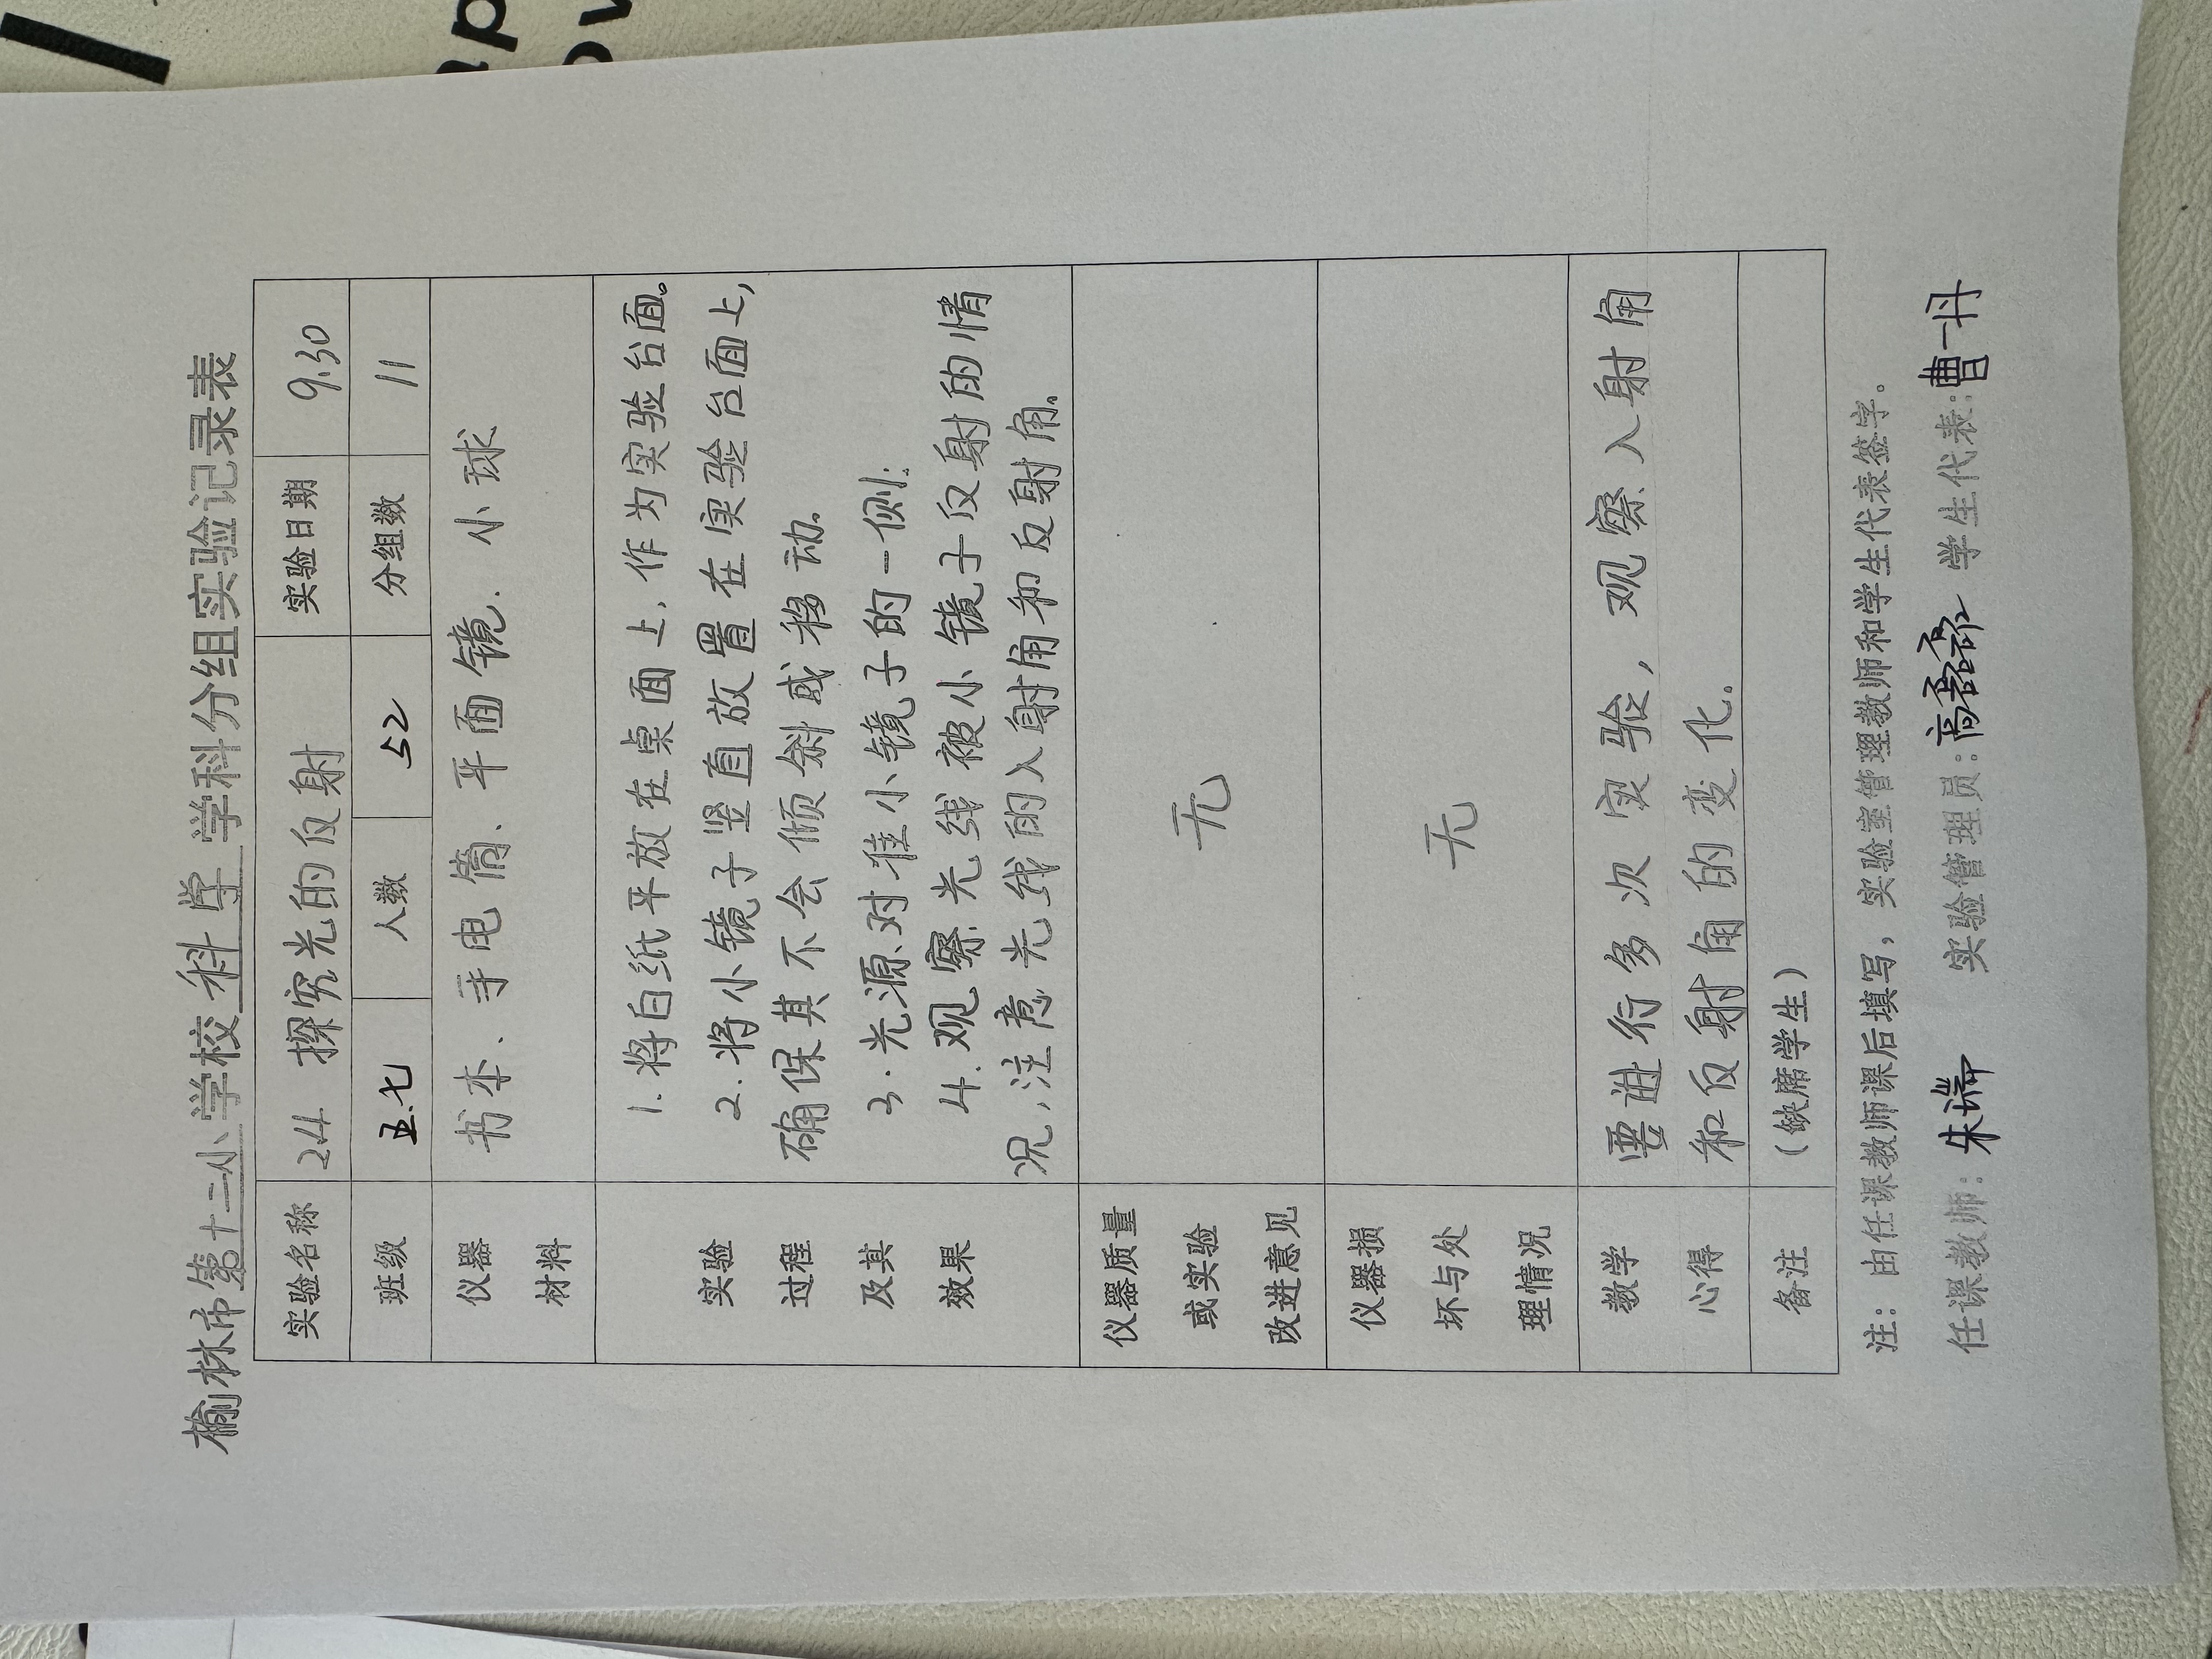 榆林市第十二小学校科学学科分组实验记录表
实验名称 24 探究光的反射 实验日期 9.30
班级 五.七 人数 52 分组数 11
仪器材料 书本、手电筒、平面镜、小球
实验过程及其效果
1.将白纸平放在桌面上,作为实验台面。
2.将小镜子竖直放置在实验台面上,
确保其不会倾斜或移动.
3.光源对准小镜子的一侧.
4.观察光线被小镜子反射的情
况,注意光线的入射角和反射角.
仪器质量或实验改进意见 无
仪器损坏与处理情况 无
教学心得
要进行多次实验,观察入射角
和反射角的变化.
备注 (缺席学生)
注:由任课教师课后填写,实验室管理教师和学生代表签字。
任课教师:朱端 实验管理员:高 学生代表:曹一丹
ap
ov